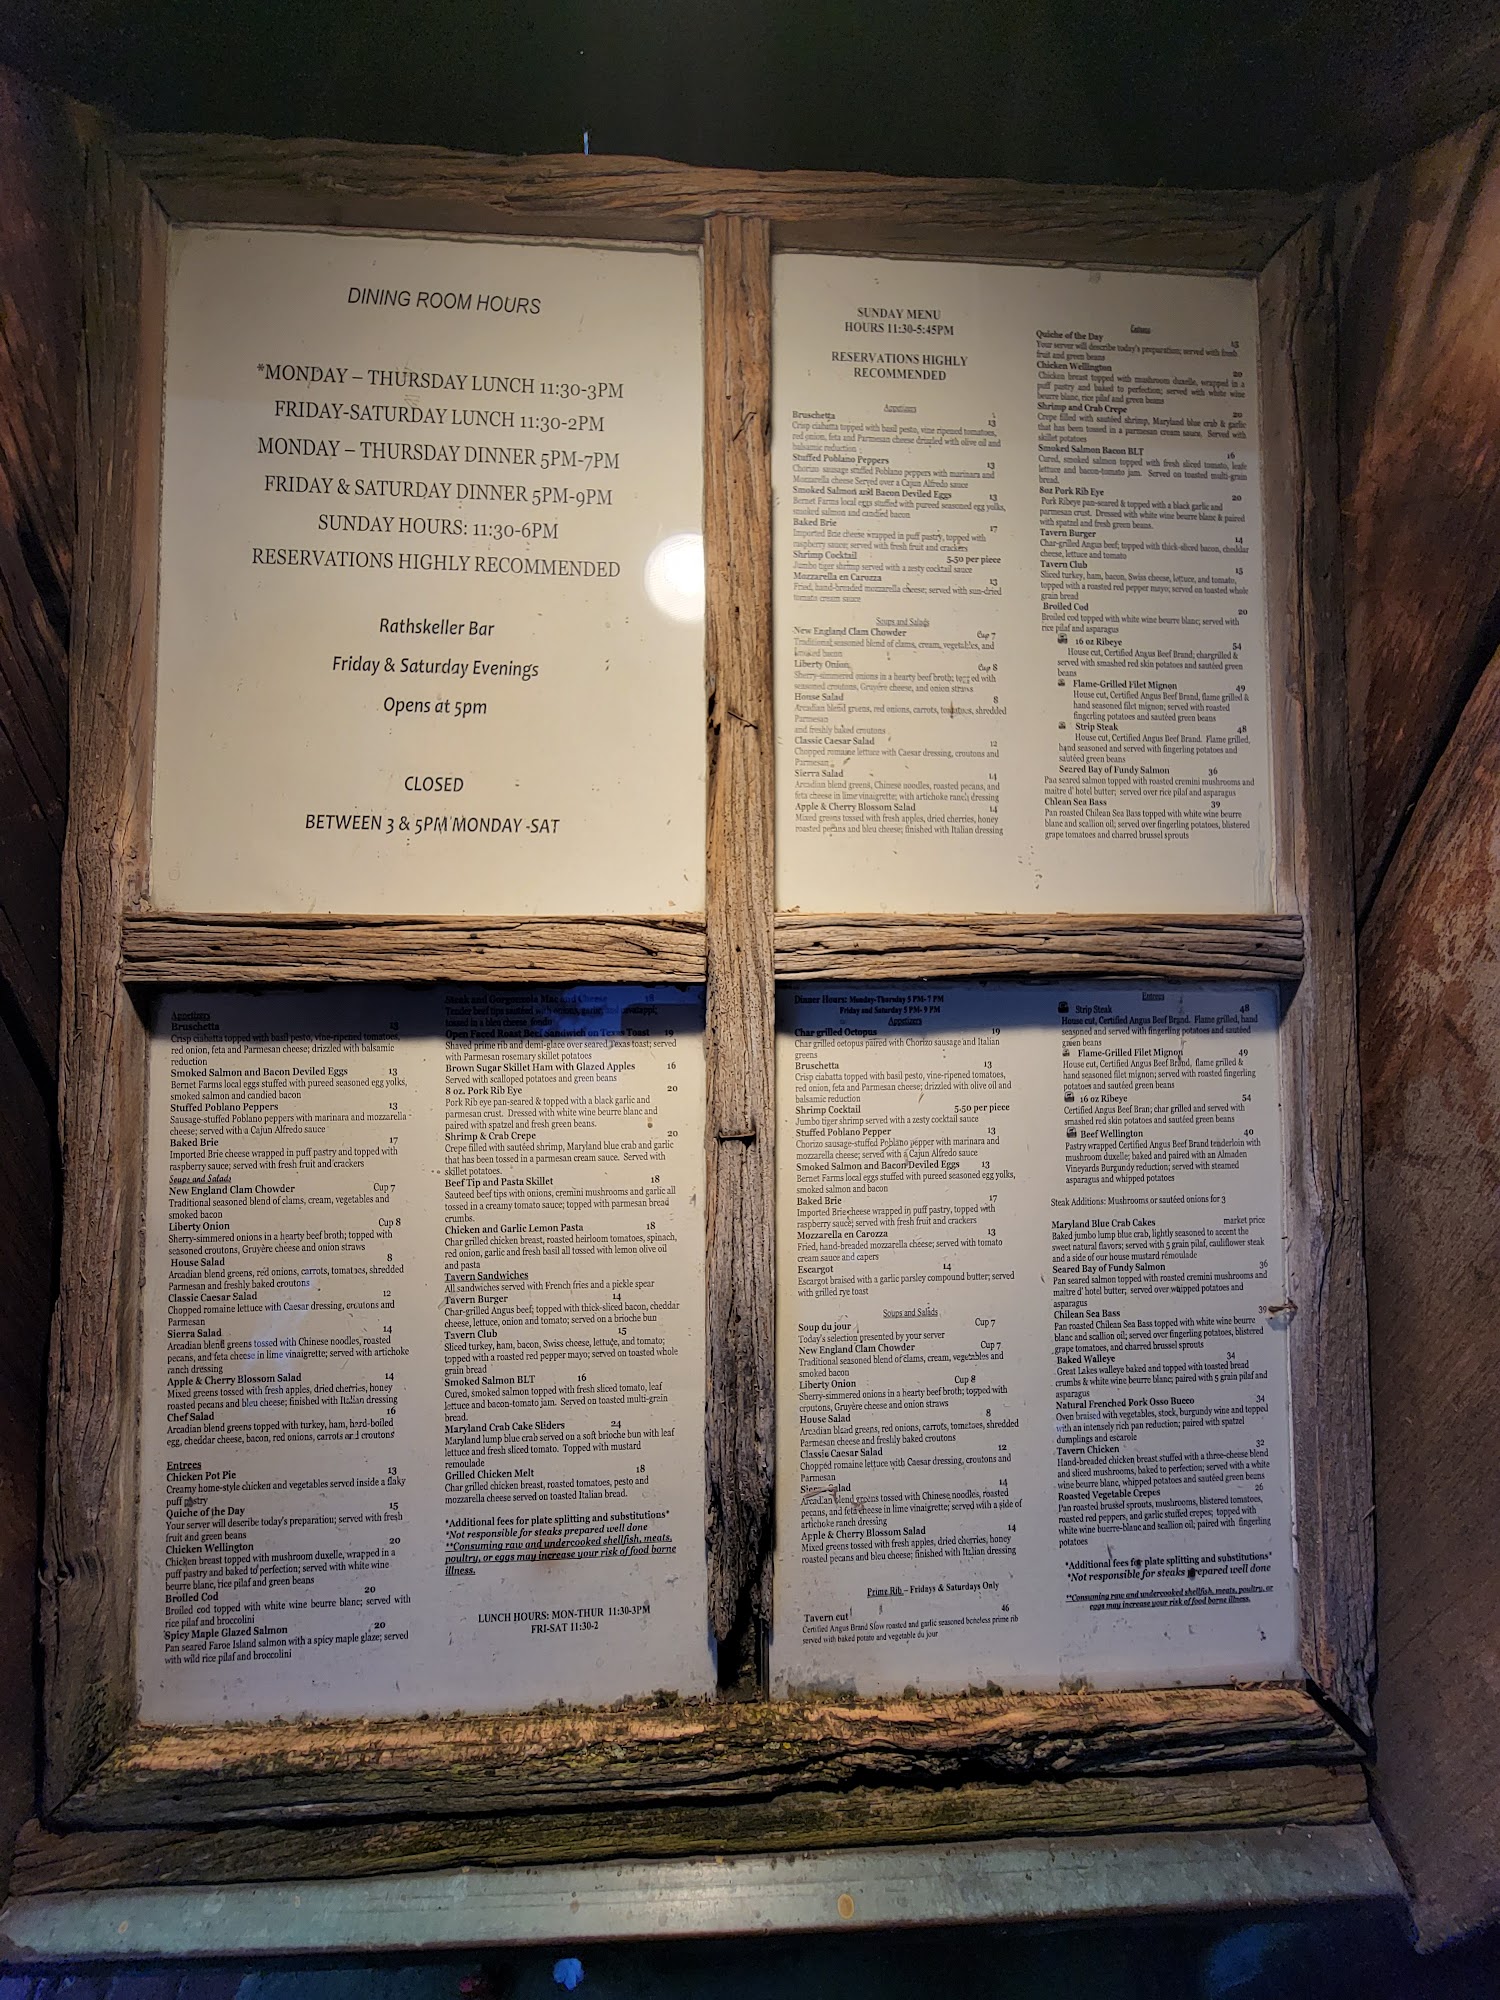 DINING ROOM HOURS
*MONDAY – THURSDAY LUNCH 11:30-3PM
FRIDAY-SATURDAY LUNCH 11:30-2PM
MONDAY – THURSDAY DINNER 5PM-7PM
FRIDAY & SATURDAY DINNER 5PM-9PM
SUNDAY HOURS: 11:30-6PM
RESERVATIONS HIGHLY RECOMMENDED
Rathskeller Bar
Friday & Saturday Evenings
Opens at 5pm
CLOSED
BETWEEN 3 & 5PM MONDAY -SAT
SUNDAY MENU
HOURS 11:30-5:45PM
RESERVATIONS HIGHLY
RECOMMENDED
Appetizers
Bruschetta 13
Crisp ciabatta topped with basil pesto, vine ripened tomatoes,
red onion, feta and Parmesan cheese drizzled with olive oil and
balsamic reduction
Stuffed Poblano Peppers 13
Chorizo sausage stuffed Poblano peppers with marinara and
Mozzarella cheese Served over a Cajun Alfredo sauce
Smoked Salmon and Bacon Deviled Eggs 13
Bernet Farms local eggs stuffed with pureed seasoned egg yolks,
smoked salmon and candied bacon
Baked Brie 17
Imported Brie cheese wrapped in puff pastry, topped with
raspberry sauce; served with fresh fruit and crackers
Shrimp Cocktail 5.50 per piece
Jumbo tiger shrimp served with a zesty cocktail sauce
Mozzarella en Carozza 13
Fried, hand-breaded mozzarella cheese; served with sun-dried
tomato cream sauce
Soups and Salads
New England Clam Chowder Cup 7
Traditional seasoned blend of clams, cream, vegetables, and
smoked bacon
Liberty Onion Cup 8
Sherry-simmered onions in a hearty beef broth; topped with
seasoned croutons, Gruyère cheese, and onion straws
House Salad 8
Arcadian blend greens, red onions, carrots, tomatoes, shredded
Parmesan
and freshly baked croutons
Classic Caesar Salad 12
Chopped romaine lettuce with Caesar dressing, croutons and
Parmesan
Sierra Salad 14
Arcadian blend greens, Chinese noodles, roasted pecans, and
feta cheese in lime vinaigrette; with artichoke ranch dressing
Apple & Cherry Blossom Salad 14
Mixed greens tossed with fresh apples, dried cherries, honey
roasted pecans and bleu cheese; finished with Italian dressing
Entrees
Quiche of the Day 15
Your server will describe today's preparation; served with fresh
fruit and green beans
Chicken Wellington 20
Chicken breast topped with mushroom duxelle, wrapped in a
puff pastry and baked to perfection; served with white wine
beurre blanc, rice pilaf and green beans
Shrimp and Crab Crepe 20
Crepe filled with sautéed shrimp, Maryland blue crab & garlic
that has been tossed in a parmesan cream sauce. Served with
skillet potatoes
Smoked Salmon Bacon BLT 16
Cured, smoked salmon topped with fresh sliced tomato, leafe
lettuce and bacon-tomato jam. Served on toasted multi-grain
bread.
8oz Pork Rib Eye 20
Pork Ribeye pan-seared & topped with a black garlic and
parmesan crust. Dressed with white wine beurre blanc & paired
with spatzel and fresh green beans.
Tavern Burger 14
Char-grilled Angus beef; topped with thick-sliced bacon, cheddar
cheese, lettuce and tomato
Tavern Club 15
Sliced turkey, ham, bacon, Swiss cheese, lettuce, and tomato,
topped with a roasted red pepper mayo; served on toasted whole
grain bread
Broiled Cod 20
Broiled cod topped with white wine beurre blanc; served with
rice pilaf and asparagus
16 oz Ribeye 54
House cut, Certified Angus Beef Brand; chargrilled &
served with smashed red skin potatoes and sautéed green
beans
Flame-Grilled Filet Mignon 49
House cut, Certified Angus Beef Brand, flame grilled &
hand seasoned filet mignon; served with roasted
fingerling potatoes and sautéed green beans
Strip Steak 48
House cut, Certified Angus Beef Brand. Flame grilled,
hand seasoned and served with fingerling potatoes and
sautéed green beans
Seared Bay of Fundy Salmon 36
Pan seared salmon topped with roasted cremini mushrooms and
maitre d' hotel butter; served over rice pilaf and asparagus
Chlean Sea Bass 39
Pan roasted Chilean Sea Bass topped with white wine beurre
blanc and scallion oil; served over fingerling potatoes, blistered
grape tomatoes and charred brussel sprouts
Appetizers
Bruschetta 13
Crisp ciabatta topped with basil pesto, vine-ripened tomatoes,
red onion, feta and Parmesan cheese; drizzled with balsamic
reduction
Smoked Salmon and Bacon Deviled Eggs 13
Bernet Farms local eggs stuffed with pureed seasoned egg yolks,
smoked salmon and candied bacon
Stuffed Poblano Peppers 13
Sausage-stuffed Poblano peppers with marinara and mozzarella
cheese; served with a Cajun Alfredo sauce
Baked Brie 17
Imported Brie cheese wrapped in puff pastry and topped with
raspberry sauce; served with fresh fruit and crackers
Soups and Salads
New England Clam Chowder Cup 7
Traditional seasoned blend of clams, cream, vegetables and
smoked bacon
Liberty Onion Cup 8
Sherry-simmered onions in a hearty beef broth; topped with
seasoned croutons, Gruyère cheese and onion straws
House Salad 8
Arcadian blend greens, red onions, carrots, tomatoes, shredded
Parmesan and freshly baked croutons
Classic Caesar Salad 12
Chopped romaine lettuce with Caesar dressing, croutons and
Parmesan
Sierra Salad 14
Arcadian blend greens tossed with Chinese noodles, roasted
pecans, and feta cheese in lime vinaigrette; served with artichoke
ranch dressing
Apple & Cherry Blossom Salad 14
Mixed greens tossed with fresh apples, dried cherries, honey
roasted pecans and bleu cheese; finished with Italian dressing
Chef Salad 16
Arcadian blend greens topped with turkey, ham, hard-boiled
egg, cheddar cheese, bacon, red onions, carrots and croutons
Entrees
Chicken Pot Pie 13
Creamy home-style chicken and vegetables served inside a flaky
puff pastry
Quiche of the Day 15
Your server will describe today's preparation; served with fresh
fruit and green beans
Chicken Wellington 20
Chicken breast topped with mushroom duxelle, wrapped in a
puff pastry and baked to perfection; served with white wine
beurre blanc, rice pilaf and green beans
Broiled Cod 20
Broiled cod topped with white wine beurre blanc; served with
rice pilaf and broccolini
Spicy Maple Glazed Salmon 20
Pan seared Faroe Island salmon with a spicy maple glaze; served
with wild rice pilaf and broccolini
Steak and Gorgonzola Mac and Cheese 18
Tender beef tips sautéed with onions, garlic, and cavatappi;
tossed in a bleu cheese fondue
Open Faced Roast Beef Sandwich on Texas Toast 19
Shaved prime rib and demi-glace over seared Texas toast; served
with Parmesan rosemary skillet potatoes
Brown Sugar Skillet Ham with Glazed Apples 16
Served with scalloped potatoes and green beans
8 oz. Pork Rib Eye 20
Pork Rib eye pan-seared & topped with a black garlic and
parmesan crust. Dressed with white wine beurre blanc and
paired with spatzel and fresh green beans.
Shrimp & Crab Crepe 20
Crepe filled with sautéed shrimp, Maryland blue crab and garlic
that has been tossed in a parmesan cream sauce. Served with
skillet potatoes.
Beef Tip and Pasta Skillet 18
Sauteed beef tips with onions, cremini mushrooms and garlic all
tossed in a creamy tomato sauce; topped with parmesan bread
crumbs.
Chicken and Garlic Lemon Pasta 18
Char grilled chicken breast, roasted heirloom tomatoes, spinach,
red onion, garlic and fresh basil all tossed with lemon olive oil
and pasta
Tavern Sandwiches
All sandwiches served with French fries and a pickle spear
Tavern Burger 14
Char-grilled Angus beef; topped with thick-sliced bacon, cheddar
cheese, lettuce, onion and tomato; served on a brioche bun
Tavern Club 15
Sliced turkey, ham, bacon, Swiss cheese, lettuce, and tomato;
topped with a roasted red pepper mayo; served on toasted whole
grain bread
Smoked Salmon BLT 16
Cured, smoked salmon topped with fresh sliced tomato, leaf
lettuce and bacon-tomato jam. Served on toasted multi-grain
bread.
Maryland Crab Cake Sliders 24
Maryland lump blue crab served on a soft brioche bun with leaf
lettuce and fresh sliced tomato. Topped with mustard
remoulade
Grilled Chicken Melt 18
Char grilled chicken breast, roasted tomatoes, pesto and
mozzarella cheese served on toasted Italian bread.
*Additional fees for plate splitting and substitutions*
*Not responsible for steaks prepared well done
**Consuming raw and undercooked shellfish, meats,
poultry, or eggs may increase your risk of food borne
illness.
LUNCH HOURS: MON-THUR 11:30-3PM
FRI-SAT 11:30-2
Dinner Hours: Monday-Thursday 5 PM- 7 PM
Friday and Saturday 5 PM- 9 PM
Appetizers
Char grilled Octopus 19
Char grilled octopus paired with Chorizo sausage and Italian
greens
Bruschetta 13
Crisp ciabatta topped with basil pesto, vine-ripened tomatoes,
red onion, feta and Parmesan cheese; drizzled with olive oil and
balsamic reduction
Shrimp Cocktail 5.50 per piece
Jumbo tiger shrimp served with a zesty cocktail sauce
Stuffed Poblano Pepper 13
Chorizo sausage-stuffed Poblano pepper with marinara and
mozzarella cheese; served with a Cajun Alfredo sauce
Smoked Salmon and Bacon Deviled Eggs 13
Bernet Farms local eggs stuffed with pureed seasoned egg yolks,
smoked salmon and bacon
Baked Brie 17
Imported Brie cheese wrapped in puff pastry, topped with
raspberry sauce; served with fresh fruit and crackers
Mozzarella en Carozza 13
Fried, hand-breaded mozzarella cheese; served with tomato
cream sauce and capers
Escargot 14
Escargot braised with a garlic parsley compound butter; served
with grilled rye toast
Soups and Salads
Soup du jour Cup 7
Today's selection presented by your server
New England Clam Chowder Cup 7
Traditional seasoned blend of clams, cream, vegetables and
smoked bacon
Liberty Onion Cup 8
Sherry-simmered onions in a hearty beef broth; topped with
croutons, Gruyère cheese and onion straws
House Salad 8
Arcadian blend greens, red onions, carrots, tomatoes, shredded
Parmesan cheese and freshly baked croutons
Classic Caesar Salad 12
Chopped romaine lettuce with Caesar dressing, croutons and
Parmesan
Sierra Salad 14
Arcadian blend greens tossed with Chinese noodles, roasted
pecans, and feta cheese in lime vinaigrette; served with a side of
artichoke ranch dressing
Apple & Cherry Blossom Salad 14
Mixed greens tossed with fresh apples, dried cherries, honey
roasted pecans and bleu cheese; finished with Italian dressing
Prime Rib – Fridays & Saturdays Only
Tavern cut 46
Certified Angus Brand Slow roasted and garlic seasoned boneless prime rib
served with baked potato and vegetable du jour
Entrees
Strip Steak 48
House cut, Certified Angus Beef Brand. Flame grilled, hand
seasoned and served with fingerling potatoes and sautéed
green beans
Flame-Grilled Filet Mignon 49
House cut, Certified Angus Beef Brand, flame grilled &
hand seasoned filet mignon; served with roasted fingerling
potatoes and sautéed green beans
16 oz Ribeye 54
Certified Angus Beef Bran; char grilled and served with
smashed red skin potatoes and sautéed green beans
Beef Wellington 40
Pastry wrapped Certified Angus Beef Brand tenderloin with
mushroom duxelle; baked and paired with an Almaden
Vineyards Burgundy reduction; served with steamed
asparagus and whipped potatoes
Steak Additions: Mushrooms or sautéed onions for 3
Maryland Blue Crab Cakes market price
Baked jumbo lump blue crab, lightly seasoned to accent the
sweet natural flavors; served with 5 grain pilaf, cauliflower steak
and a side of our house mustard rémoulade
Seared Bay of Fundy Salmon 36
Pan seared salmon topped with roasted cremini mushrooms and
maitre d' hotel butter; served over whipped potatoes and
asparagus
Chilean Sea Bass 39
Pan roasted Chilean Sea Bass topped with white wine beurre
blanc and scallion oil; served over fingerling potatoes, blistered
grape tomatoes, and charred brussel sprouts
Baked Walleye 34
Great Lakes walleye baked and topped with toasted bread
crumbs & white wine beurre blanc; paired with 5 grain pilaf and
asparagus
Natural Frenched Pork Osso Bucco 34
Oven braised with vegetables, stock, burgundy wine and topped
with an intensely rich pan reduction; paired with spatzel
dumplings and escarole
Tavern Chicken 32
Hand-breaded chicken breast stuffed with a three-cheese blend
and sliced mushrooms, baked to perfection; served with a white
wine beurre blanc, whipped potatoes and sautéed green beans
Roasted Vegetable Crepes 26
Pan roasted brussel sprouts, mushrooms, blistered tomatoes,
roasted red peppers, and garlic stuffed crepes; topped with
white wine buerre-blanc and scallion oil; paired with fingerling
potatoes
*Additional fees for plate splitting and substitutions*
*Not responsible for steaks prepared well done
**Consuming raw and undercooked shellfish, meats, poultry, or
eggs may increase your risk of food borne illness.